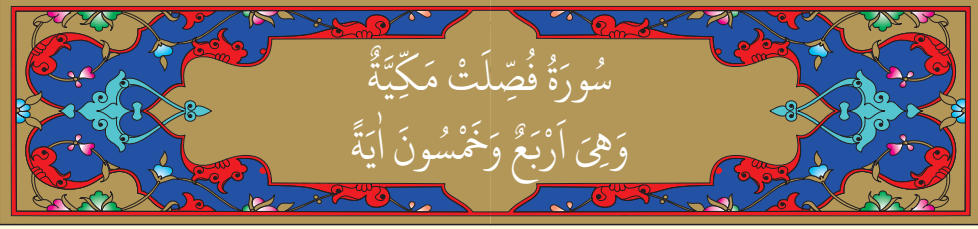 سُورَةُ فُصِّلَتْ مَكِّيَّةٌ
وَهِىَ اَرْبَعٌ وَخَمْسُونَ اٰيَةً